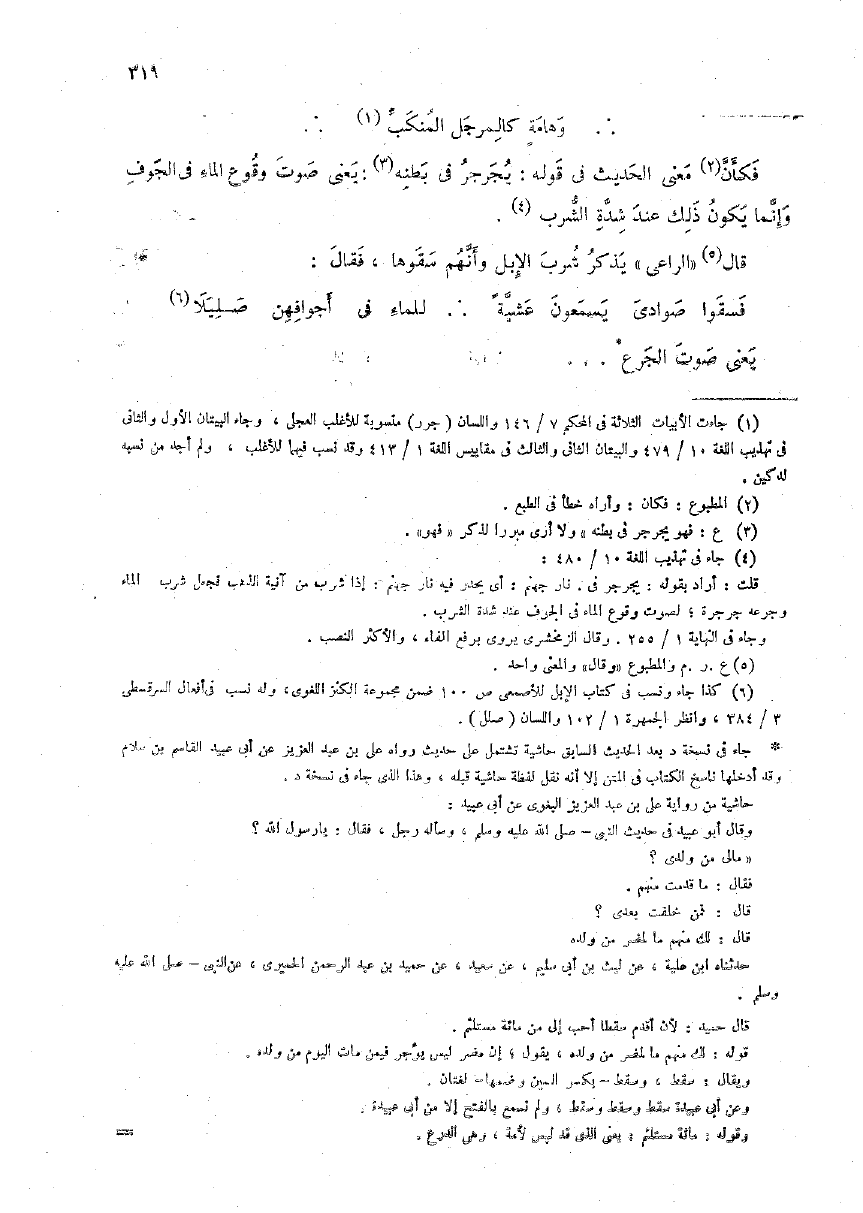 ٣١٩
∴ وَهامَةٍ كالِمرجَل المُنكَبِّ (١) ∴
فَكأَنَّ(٢) مَعنى الحَديث فى قَوله : يُجَرجرُ فى بَطنِه(٣) : يَعَنى صَوتَ وقُوع الماءِ فى الجَوفِ
وَإنَّما يَكونُ ذَلِك عندَ شِدَّةِ الشُّرب (٤) .
قال(٥) «الراعى» يَذكرُ شُربَ الإبِل وأَنَّهُم سَقَوها ، فَقالَ :
فَسقَوا صَوادىَ يَسمَعونَ عَشيَّةً ∴ للماءِ فى أَجوافِهِن صَلِيلَا(٦)
يَعَنى صَوتَ الجَرع * . . .
(١) جاءت الأبيات الثلاثة فى المحكم ٧ / ١٤٦ واللسان ( جرر) منسوبة للأغلب العجلى ، وجاء البيتان الأول والثانى
فى تهذيب اللغة ١٠ / ٤٧٩ والبيتان الثانى والثالث فى مقاييس اللغة ١ / ٤١٣ وقد نسب فيهما للأغلب ، ولم أجد من نسبه
لدكين .
(٢) المطبوع : فكان : وأراه خطأ فى الطبع .
(٣) ع : فهو يجرجر فى بطنه » ولا أرى مبررا لذكر « فهو» .
(٤) جاء فى تهذيب اللغة ١٠ / ٤٨٠ :
قلت : أراد بقوله : يجرجر فى . نار جهنم : أى يحدر فيه نار جهنم : إذا شرب من آنية الذهب فجعل شرب الماء
وجرعه جرجرة ؛ لصوت وقوع الماء فى الجوف عند شدة الشرب .
وجاء فى النهاية ١ / ٢٥٥ . وقال الزمخشرى يروى برفع الفاء ، والأكثر النصب .
(٥) ع . ر . م والمطبوع «وقال» والمعنى واحد .
(٦) كذا جاء ونسب فى كتاب الإبل للأصمعى ص ١٠٠ ضمن مجموعة الكنز اللغوى، وله نسب فى أفعال السرقسطى
٣ / ٣٨٤ ، وانظر الجمهرة ١ / ١٠٢ واللسان ( صلل ) .
* جاء فى نسخة د بعد الحديث السابق حاشية تشتمل على حديث رواه على بن عبد العزيز عن أبى عبيد القاسم بن سلام
وقد أدخلها ناسخ الكتاب فى المتن إلا أنه نقل لفظة حاشية قبله ، وهذا الذى جاء فى نسخة د .
حاشية من رواية على بن عبد العزيز البغوى عن أبى عبيد :
وقال أبو عبيد فى حديث النبى – صلى الله عليه وسلم ، وسأله رجل ، فقال : يارسول الله ؟
« مالى من ولدى ؟
فقال : ما قدمت منهم .
قال : فمن خلفت بعدى ؟
قال : لك منهم ما لمضر من ولده
حدثناه ابن علية ، عن ليث بن أبى سليم ، عن سعيد ، عن حميد بن عبد الرحمن الحميرى ، عن النبى – صلى الله عليه
وسلم .
قال حميد : لأن أقدم سقطا أحب إلى من مائة مستلئم .
قوله : لك منهم ما لمضر من ولده ، يقول ؛ إن مضر ليس يؤجر فيمن مات اليوم من ولده .
ويقال : سقط ، وسقط – بكسر السين وضمها– لغتان .
وعن أبى عبيدة سقط وسقط وسقط ، ولم نسمع بالفتح إلا من أبى عبيدة .
وقوله : مائة مستلئم : يعنى الذى قد لبس لأمة ، وهى الدرع . =